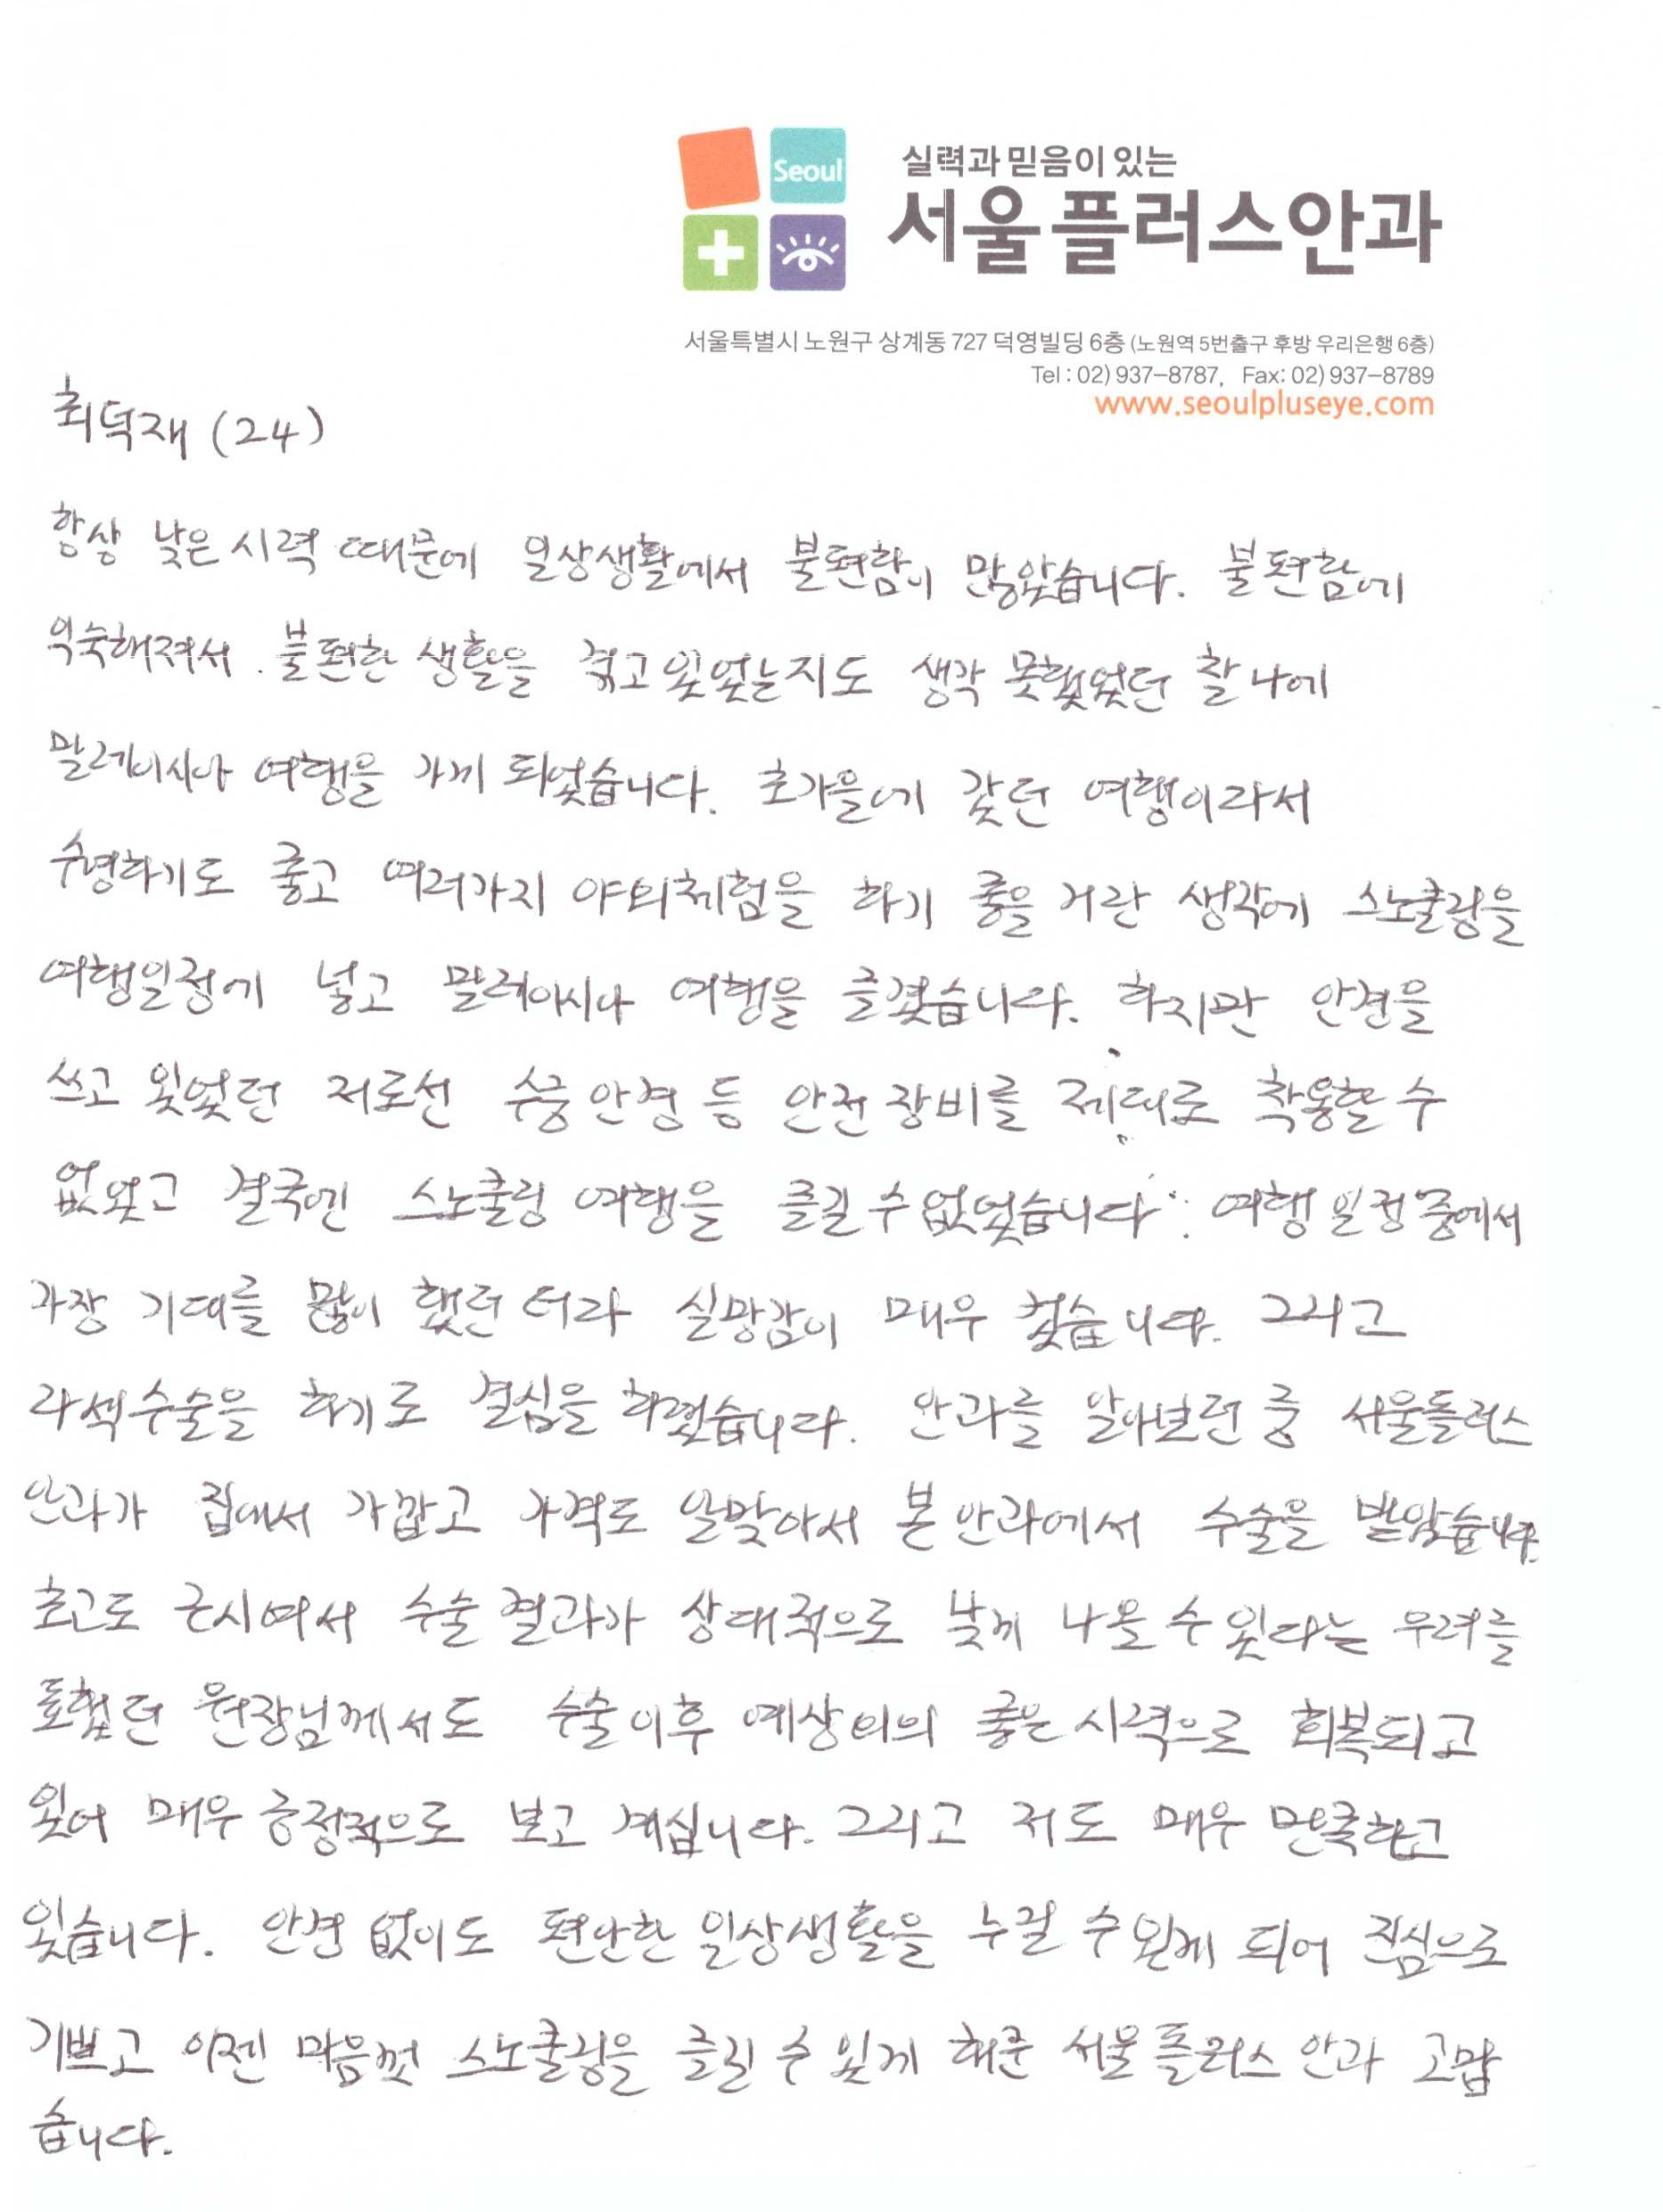 Seoul
실력과 믿음이 있는
서울플러스안과
서울특별시 노원구 상계동 727 덕영빌딩 6층 (노원역 5번출구 후방 우리은행 6층)
Tel : 02) 937-8787,  Fax: 02) 937-8789
www.seoulpluseye.com
최덕재 (24)
항상 낮은 시력 때문에 일상생활에서 불편함이 많았습니다. 불편함에
익숙해져서 불편한 생활을 겪고 있었는지도 생각 못했었던 찰나에
말레이시아 여행을 가게 되었습니다. 초가을에 갔던 여행이라서
수영하기도 좋고 여러가지 야외체험을 하기 좋을 거란 생각에 스노쿨링을
여행일정에 넣고 말레이시아 여행을 즐겼습니다. 하지만 안경을
쓰고 있었던 저로선 수중안경 등 안전장비를 제대로 착용할 수
없었고 결국엔 스노쿨링 여행을 즐길 수 없었습니다. 여행일정중에서
가장 기대를 많이 했던 터라 실망감이 매우 컸습니다. 그리고
라섹수술을 하기로 결심을 하였습니다. 안과를 알아보던 중 서울플러스
안과가 집에서 가깝고 가격도 알맞아서 본 안과에서 수술을 받았습니다.
초고도 근시여서 수술 결과가 상대적으로 낮게 나올 수 있다는 우려를
표했던 원장님께서도 수술이후 예상외의 좋은 시력으로 회복되고
있어 매우 긍정적으로 보고 계십니다. 그리고 저도 매우 만족하고
있습니다. 안경 없이도 편안한 일상생활을 누릴 수 있게 되어 진심으로
기쁘고 이젠 마음껏 스노쿨링을 즐길 수 있게 해준 서울플러스 안과 고맙
습니다.